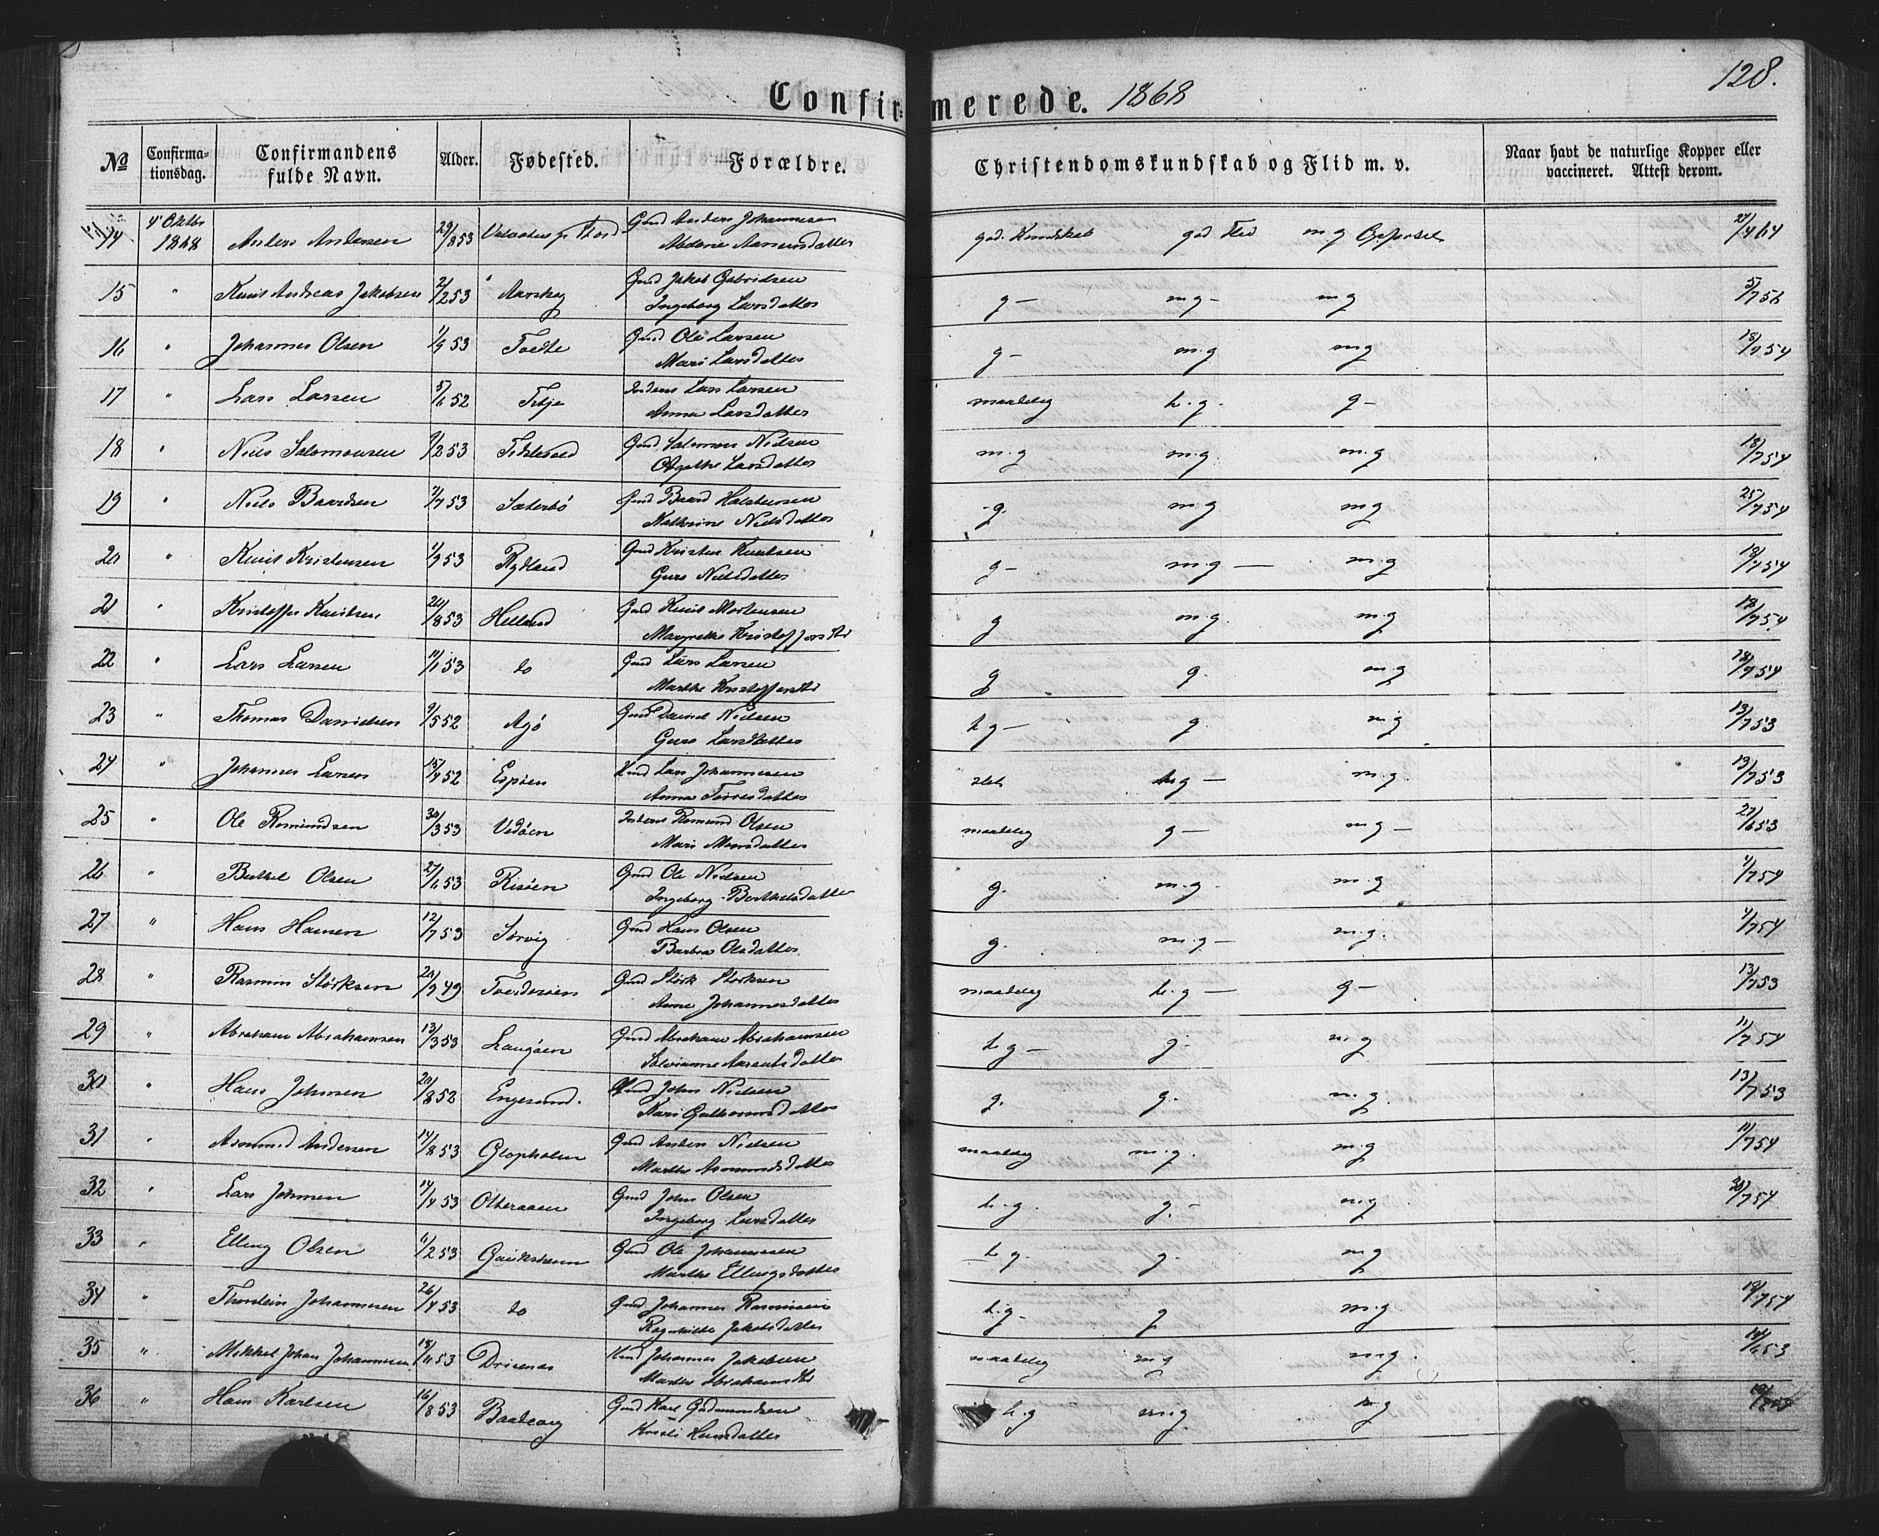 Confirmerede. 1868
128.
№ Confirmationsdag. Confirmandens fulde Navn. Alder. Fødested. Forældre. Christendomskundskab og Flid m. v. Naar havt de naturlige Kopper eller vaccineret. Attest derom.
14 4' Oktbr 1868 Anders Andersen 29/8 53 Gmd Anders Johannesen god Kundskab god Flid m g Opførsel 27/4 64
15 " Knut Andreas Jakobsen 2/2 53 Aarskog Gmd Jakob Gabrielsen Ingeborg Larsdatter g — m g — m g 5/7 56
16 " Johannes Olsen 1/9 53 Tvedte Gmd Ole Larsen Mari Larsdatter g — m.g m g 18/7 54
17 " Lars Larsen 5/6 52 Lars Larsen Anna Larsdatter maadelig t.g. g —
18 " Niels Salomonsen 9/2 53 Gmd Salomon Nielsen Agathe Larsdatter m.g m.g. m.g 18/7 54
19 " Niels Baardsen 7/7 53 Sæterbø Gmd Baard Halstensen Kathrine Nielsdatter g. m g m g 25/7 54
20 " Knut Kristensen 1/9 53 Rydland Gmd Kristen Knutsen Guro Nielsdatter g — m g — m.g 18/7 54
21 " Kristoffer Knutsen 24/8 53 Helland Gmd Knut Mortensen g m.g. m.g 18/7 54
22 " Lars Larsen 11/1 53 do Gmd Lars Larsen g g. m g 18/7 54
23 " Thomas Danielsen 9/5 52 Agø Gmd Daniel Nielsen Guro Larsdatter t g — g. m g 13/7 53
24 " Johannes Larsen 18/4 52 Espien Hmd Lars Johannesen Anna Torresdatter slet t g — m.g. 13/7 53
25 " Ole Romundsen 30/3 53 Vedøen Romund Olsen Mari Monsdatter maadelig g — m g — 27/6 53
26 " Berthel Olsen 27/6 53 Risøen Gmd Ole Nielsen Ingeborg Berthelsdatter g. m.g. m.g 4/7 54
27 " Hans Hansen 12/7 53 Sørvig Gmd Hans Olsen Barbra Olsdatter g. m.g — m.g. 4/7 54
28 " Rasmus Størksen 20/7 49 Gmd Størk Størksen Anne Johannesdatter maadelig t.g — g — 13/7 53
29 " Abraham Abrahamsen 13/3 53 Langøen Gmd Abraham Abrahamsen t g — g. m g 11/7 54
30 " Hans Johnsen 20/8 52 Engesund. Gmd John Nielsen Kari Guthormsdatter g. g. m.g. 13/7 53
31 " Asmund Andersen 14/8 53 Glopholm Gmd Anders Nielsen Marthe Asmundsdatter maadelig m.g. m.g 11/7 54
32 " Lars Johnsen 14/4 53 Otteraaen Gmd John Olsen Ingeborg Larsdatter t.g. g. — m.g 20/7 54
33 " Elling Olsen 11/2 53 Gmd Ole Johannesen Marthe Ellingsdatter t g. g. m g
34 " Thorstein Johannesen 26/4 53 do Gmd Johannes Rasmusen Ragnhilde Jakobsdatter t.g — g m.g 18/7 54
35 " Mikkel Johan Johannesen 18/11 53 Drivenes Hmd Johannes Jakobsen maadelig m g m g. 18/6 53
36 " Hans Karlsen 16/8 53 Gmd Karl Gudmundsen Kristi Hansdatter t.g m.g. m g